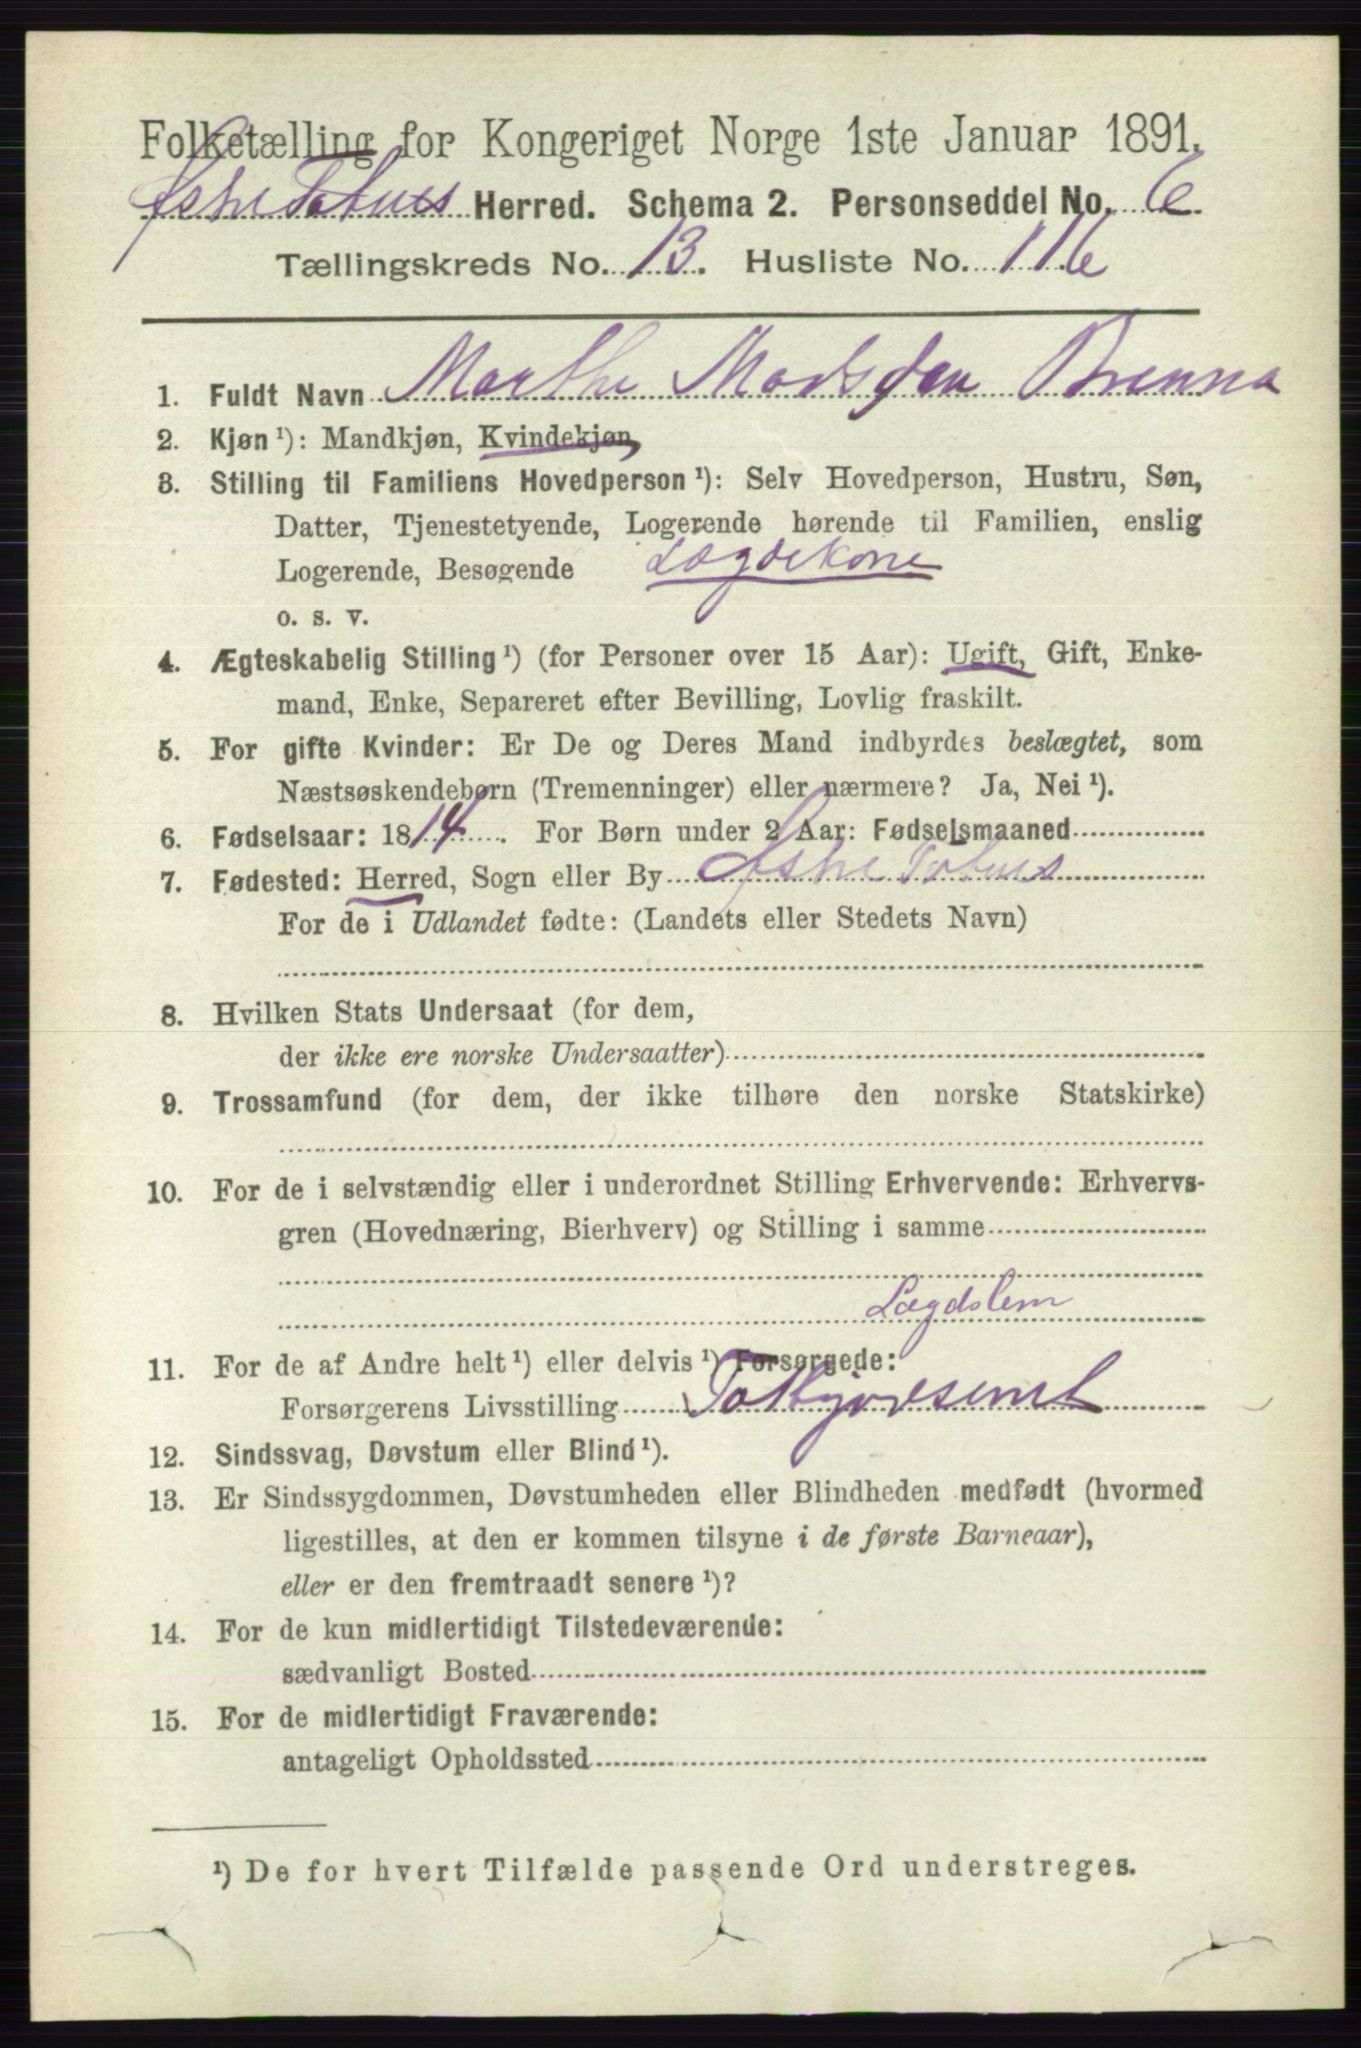 Folketælling for Kongeriget Norge 1ste Januar 1891.
Østre Totnes Herred. Schema 2. Personseddel No. 6.
Tællingskreds No. 13. Husliste No. 116
1. Fuldt Navn Marthe Madsdan Brenna
2. Kjøn ¹): Mandkjøn, Kvindekjøn,
3. Stilling til Familiens Hovedperson ¹): Selv Hovedperson, Hustru, Søn,
Datter, Tjenestetyende, Logerende hørende til Familien, enslig
Logerende, Besøgende Lægdekone
o. s. v.
4. Ægteskabelig Stilling ¹) (for Personer over 15 Aar): Ugift, Gift, Enke-
mand, Enke, Separeret efter Bevilling, Lovlig fraskilt.
5. For gifte Kvinder: Er De og Deres Mand indbyrdes beslægtet, som
Næstsøskendebørn (Tremenninger) eller nærmere? Ja, Nei ¹).
6. Fødselsaar: 1814. For Børn under 2 Aar: Fødselsmaaned
7. Fødested: Herred, Sogn eller By Østre Totnes
For de i Udlandet fødte: (Landets eller Stedets Navn)
8. Hvilken Stats Undersaat (for dem,
der ikke ere norske Undersaatter)
9. Trossamfund (for dem, der ikke tilhøre den norske Statskirke)
10. For de i selvstændig eller i underordnet Stilling Erhvervende: Erhvervs-
gren (Hovednæring, Bierhverv) og Stilling i samme
Lægdslem
11. For de af Andre helt ¹) eller delvis ¹) Forsørgede:
Forsørgerens Livsstilling
12. Sindssvag, Døvstum eller Blind ¹).
13. Er Sindssygdommen, Døvstumheden eller Blindheden medfødt (hvormed
ligestilles, at den er kommen tilsyne i de første Barneaar),
eller er den fremtraadt senere ¹)?
14. For de kun midlertidigt Tilstedeværende:
sædvanligt Bosted
15. For de midlertidigt Fraværende:
antageligt Opholdssted
¹) De for hvert Tilfælde passende Ord understreges.